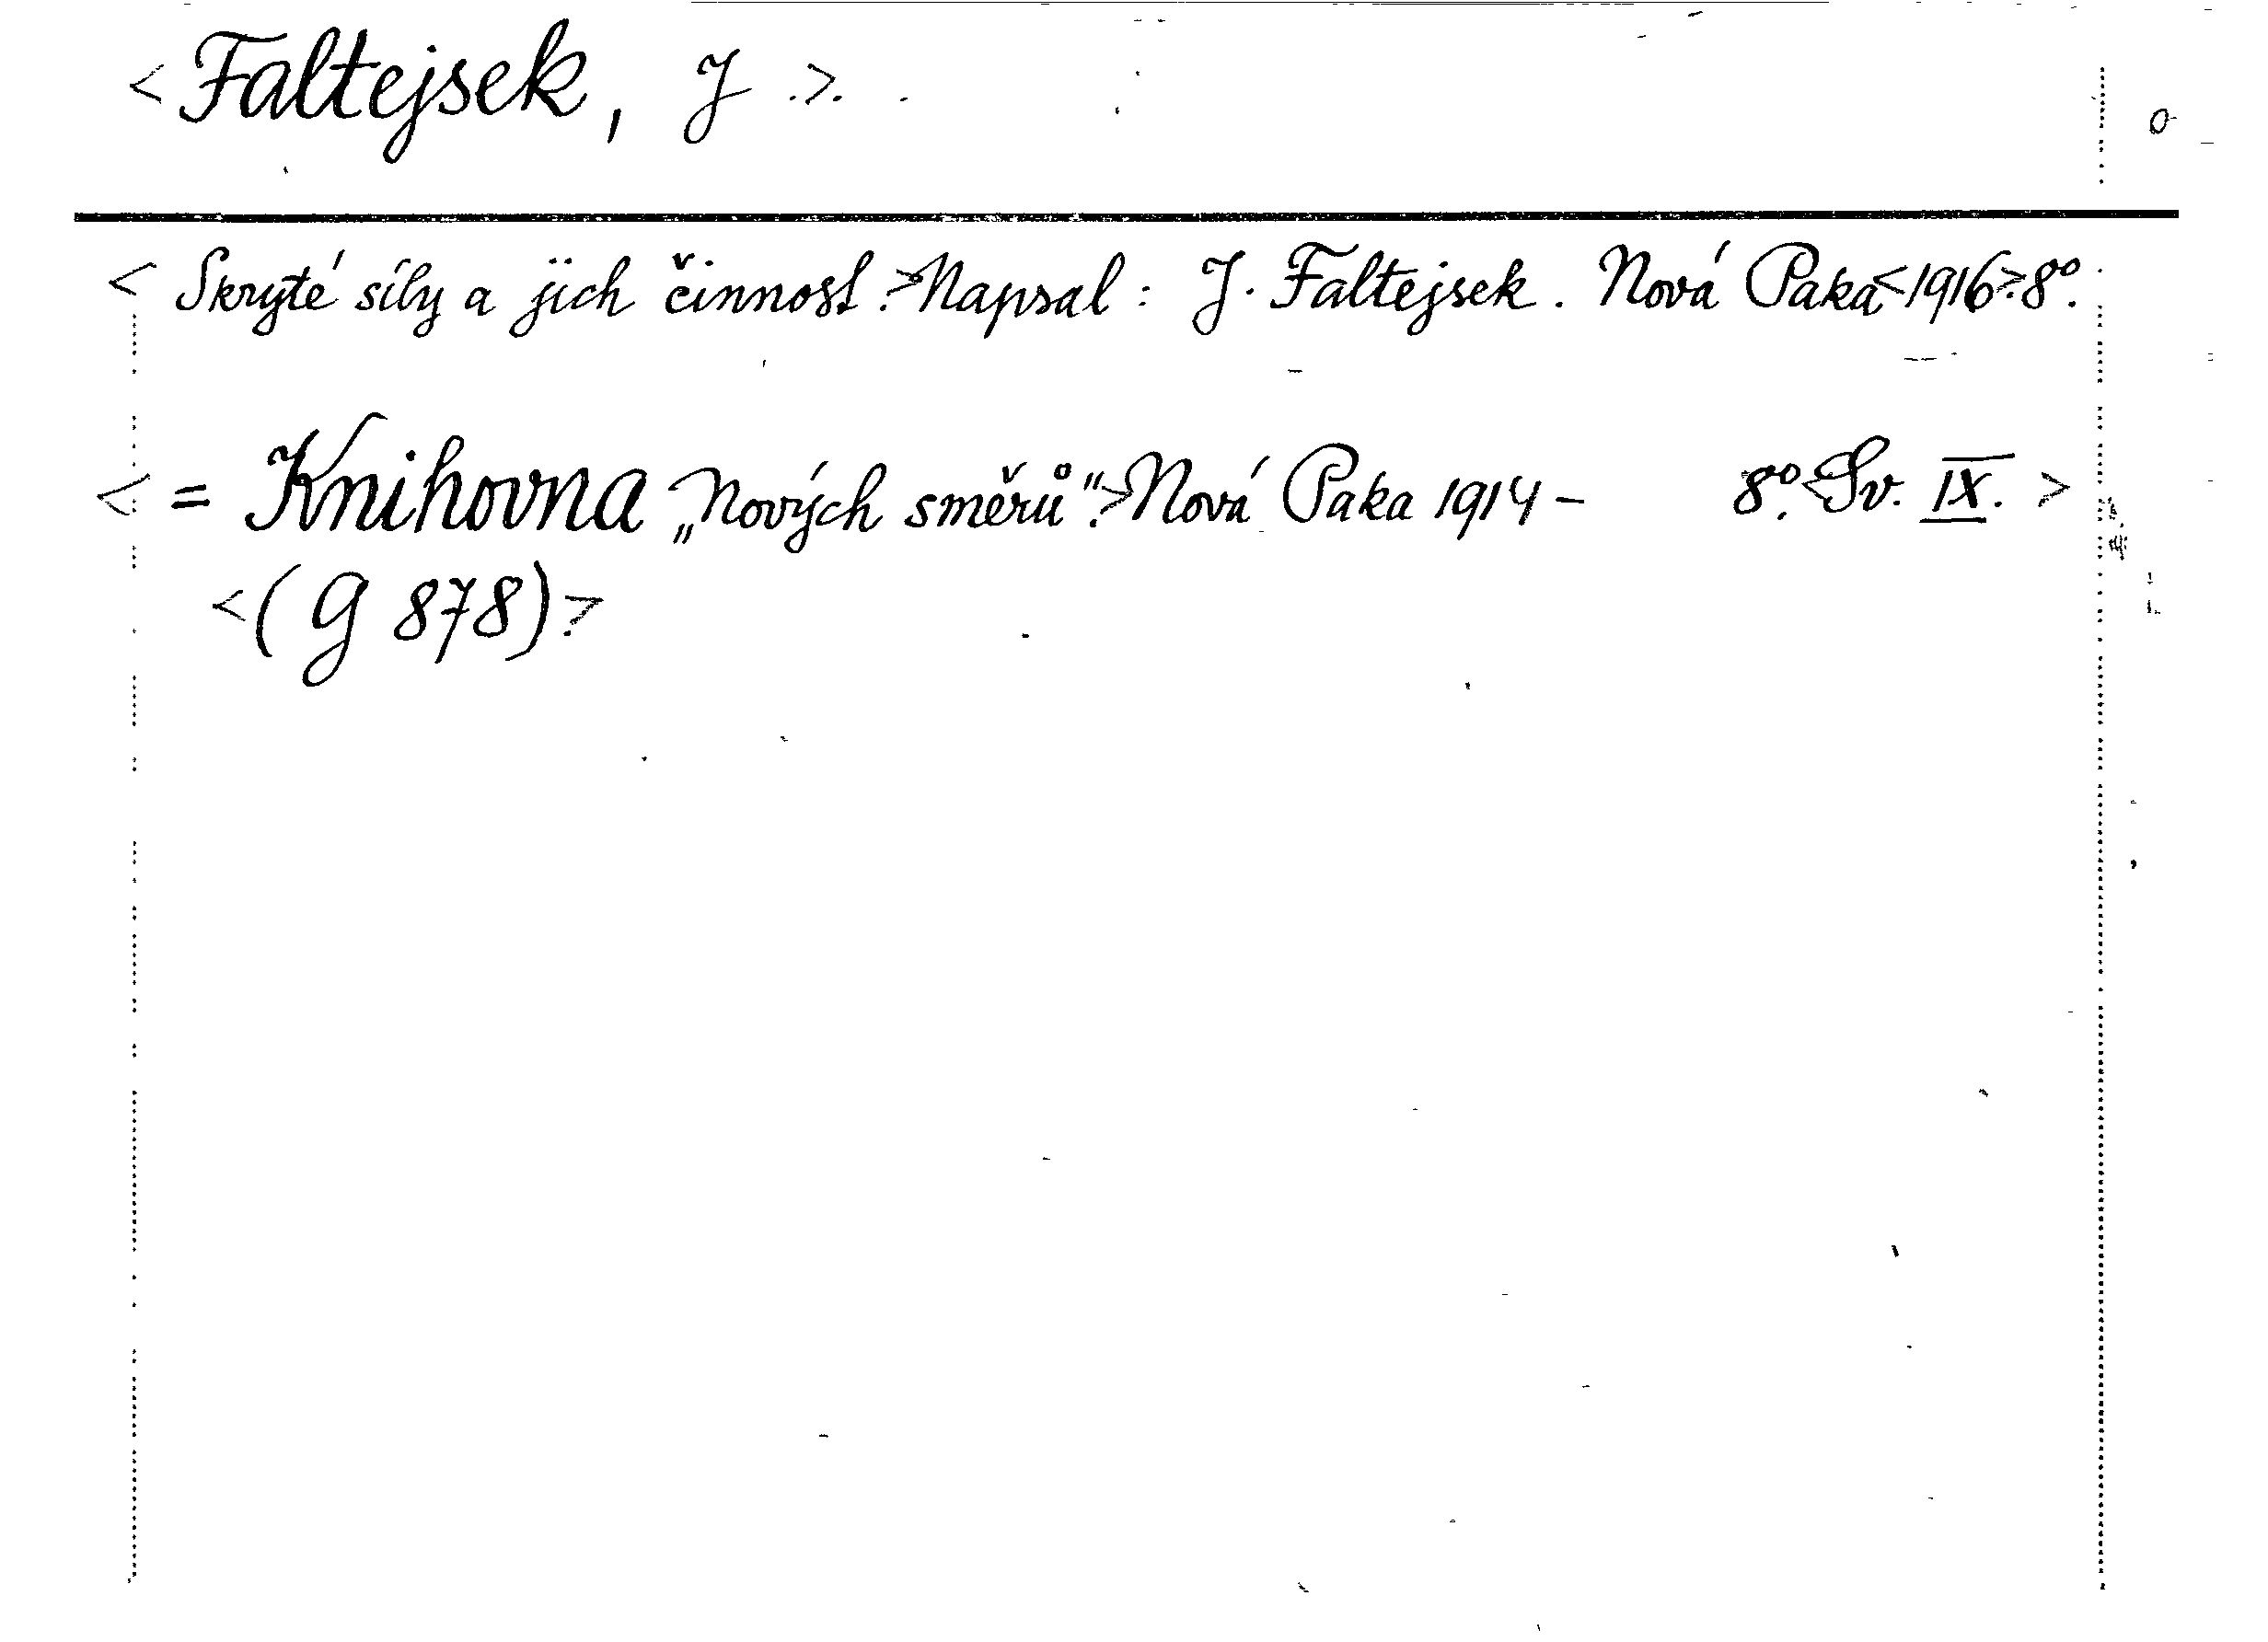 <Faltejsek, J.>.
<Skryté síly a jich činnost.>Napsal: J. Faltejsek. Nová Paka<1916>.8º.
<= Knihovna „Nových směrů“.>Nová Paka 1914- 8º.<Sv. IX.>
<(G 878).>